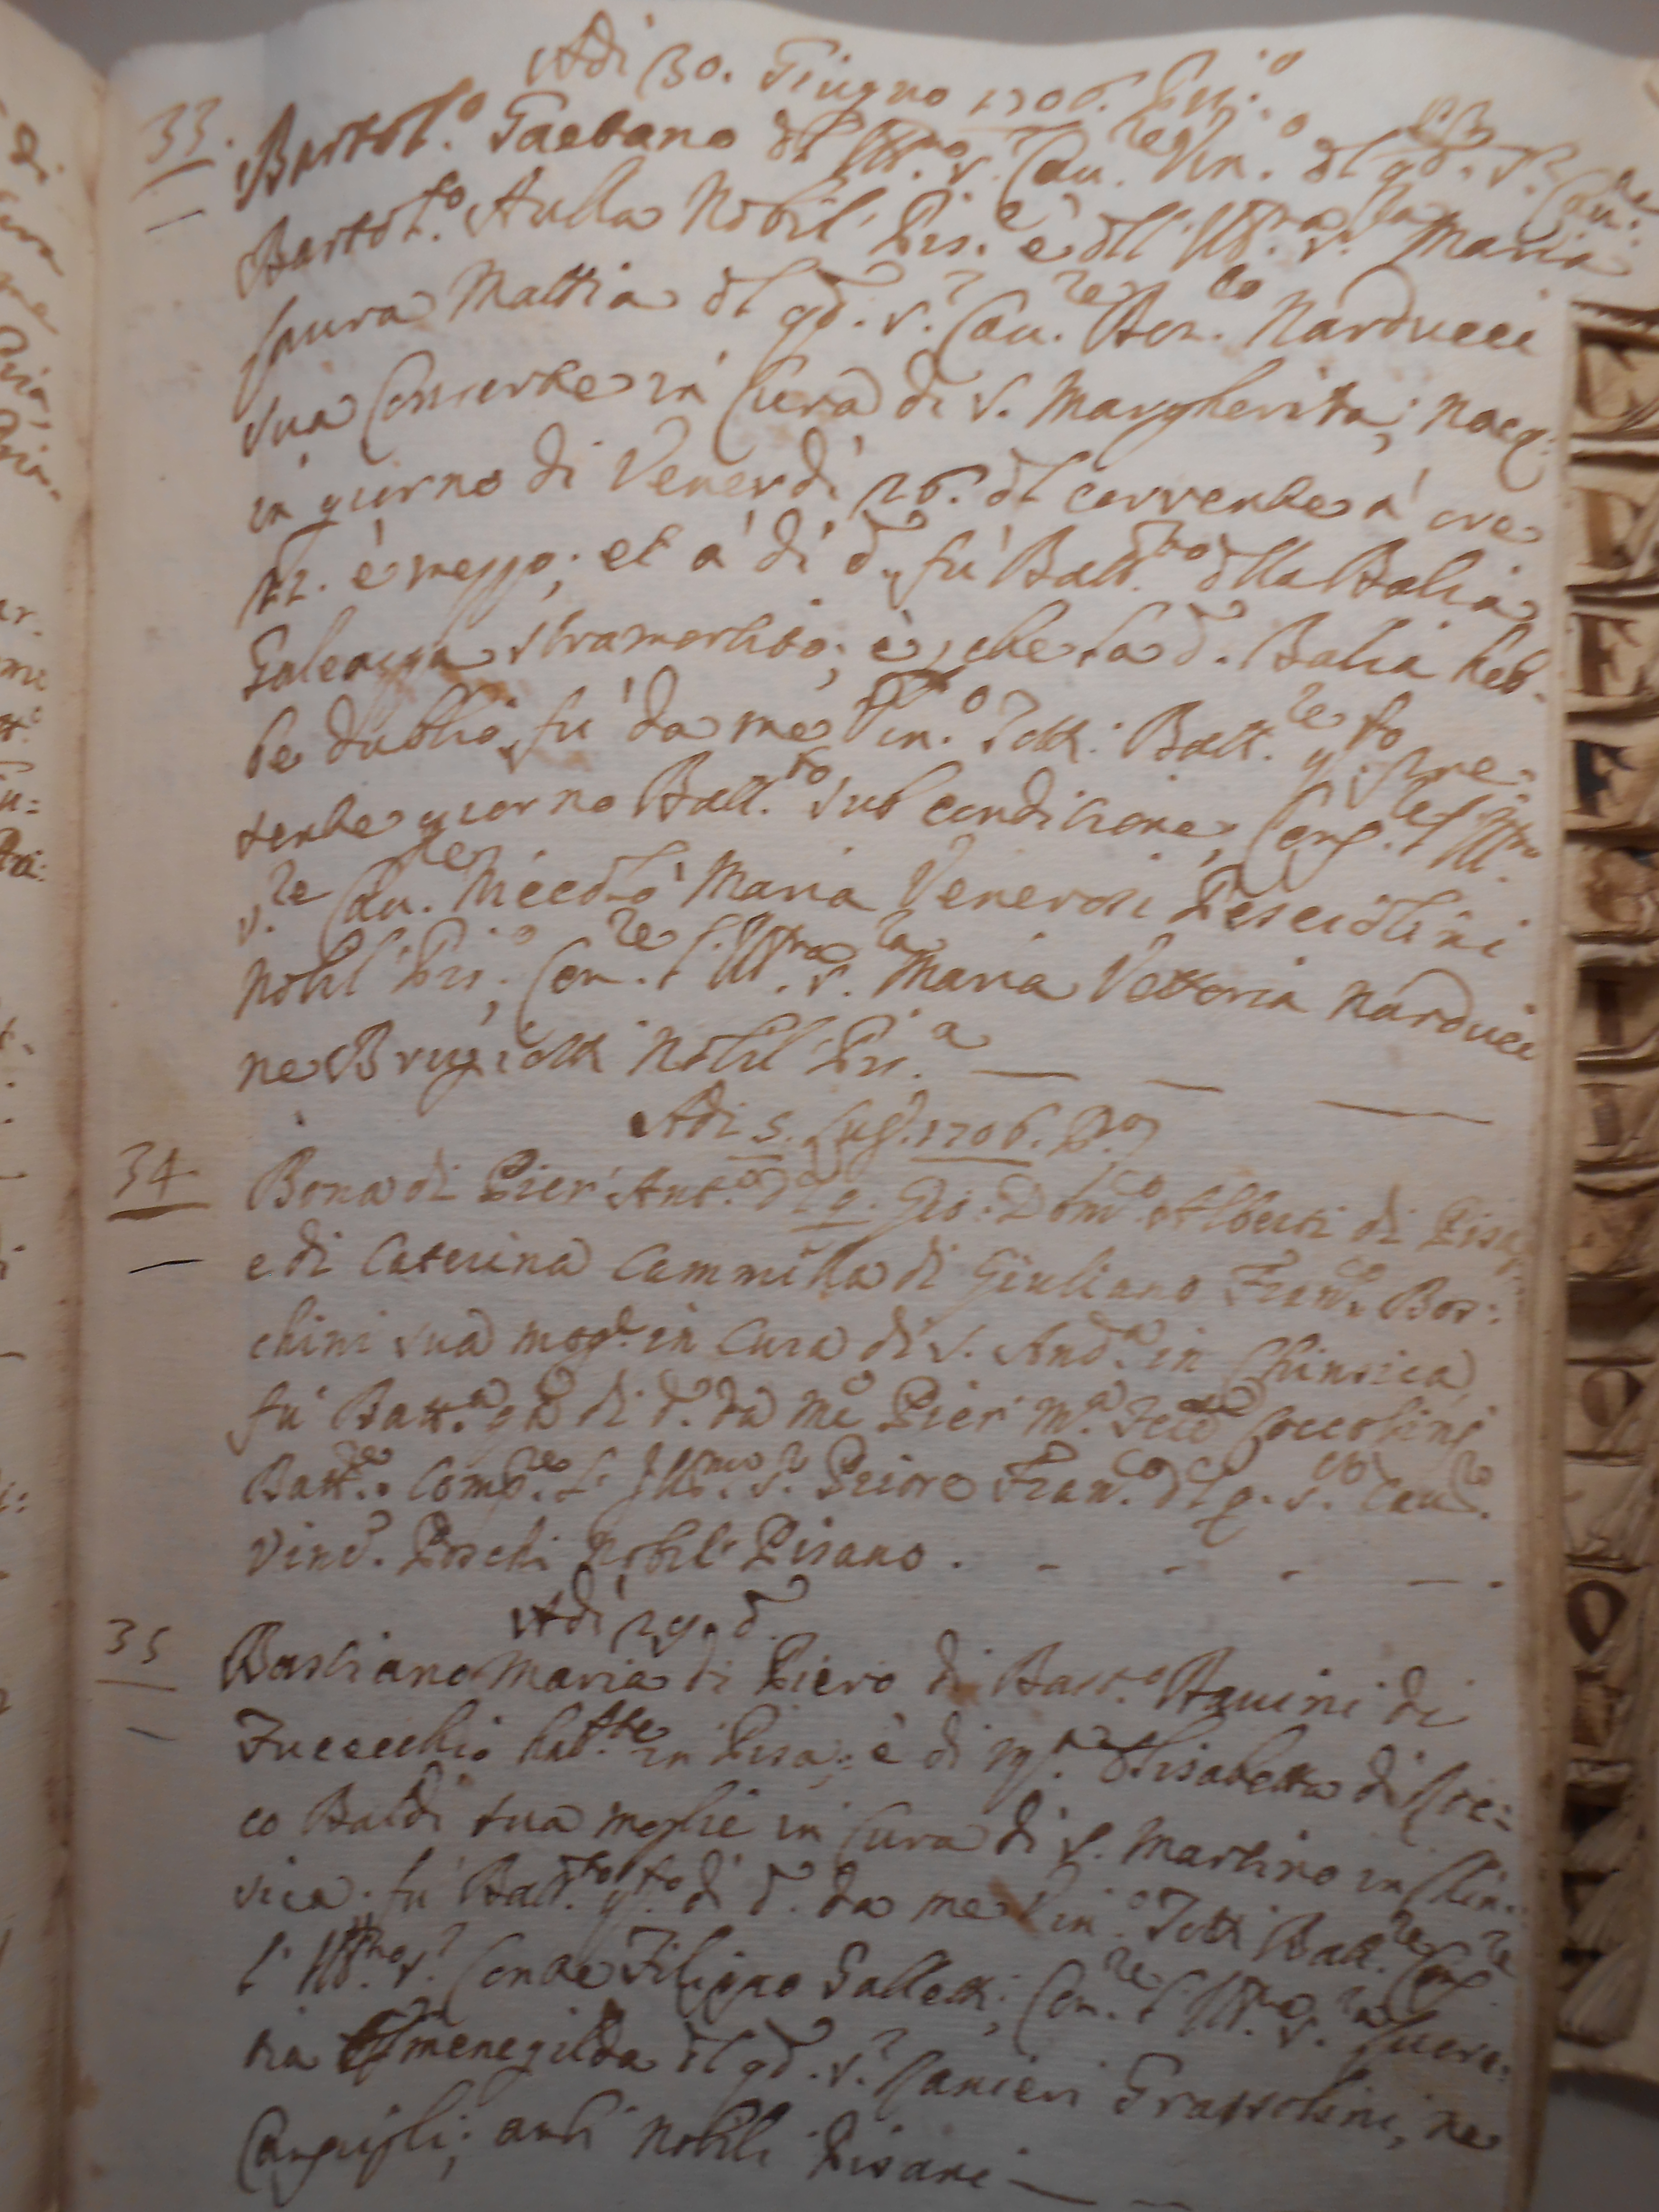 Adi 30. Giugno 1706. Pis:º
33. Bartol.º Gaetano dl Ill.mo S.r Cau.re Vin.º dl qd. S.r Cau:re
Bartol.º Aulla Nobil' Pis.º è dll' Ill.ma S.ra Maria
Laura Mattia dl qd. S.r Cau.re Ben.to Narducci
sua Consorte in Cura di S. Margherita; nacq:
in giorno di Venerdì 26. dl corrente à ore
12. è mezzo; et a' dì d.º fù Batt.to dlla Balia
Galeazza stramortito; è, che la d.ª Balia heb-
be dubbio, fù da me Vin.º Totti Batt.re q.to pre-
sente giorno Batt.to sub condicione, Comp.re l'Ill.mo
S.re Cau.re Niccolò Maria Venerosi Pesciolini
Nobil' Pis.º; Com.re l'Ill.ma S.ra Maria Vettoria Narducci
ne Brugiotti Nobil' Pis.ª
Adi 5. Lug.º 1706. P.º
34 Bona di Pier' Ant.º dl q. Gio: Dom.co Alberti di Pisa,
e di Caterina Cammilla di Giuliano Fran.co Bos:
chini sua mog.e in Cura di S. And.ª in Chinsica,
fù Batt.ª q.º dì d.º da me Pier' M.ª Coccolini
Batt.re Comp.re l' Ill.mo S.r Priore Fran.co dl q. S.r Cau.re
Vinc.º Poschi Nobil' Pisano.
Adì 29. d.º
35 Bastiano Maria di Piero di Bast.º Bauini di
Fucecchio hab.te in Pisa; è di M.ª Elisabetta di
co Baldi sua moglie in Cura di S. Martino in Chin:
sica; fù Batt.to q.to dì d.º da me Vin.º Totti Batt.re Comp.re
l' Ill.mo S.r Conte Filippo Galletti; Com.re l'Ill.ma S.ra Lucre:
tia Ermenegilda dl qd. S.r Ranieri Grassolini, ne
ambi Nobili Pisani